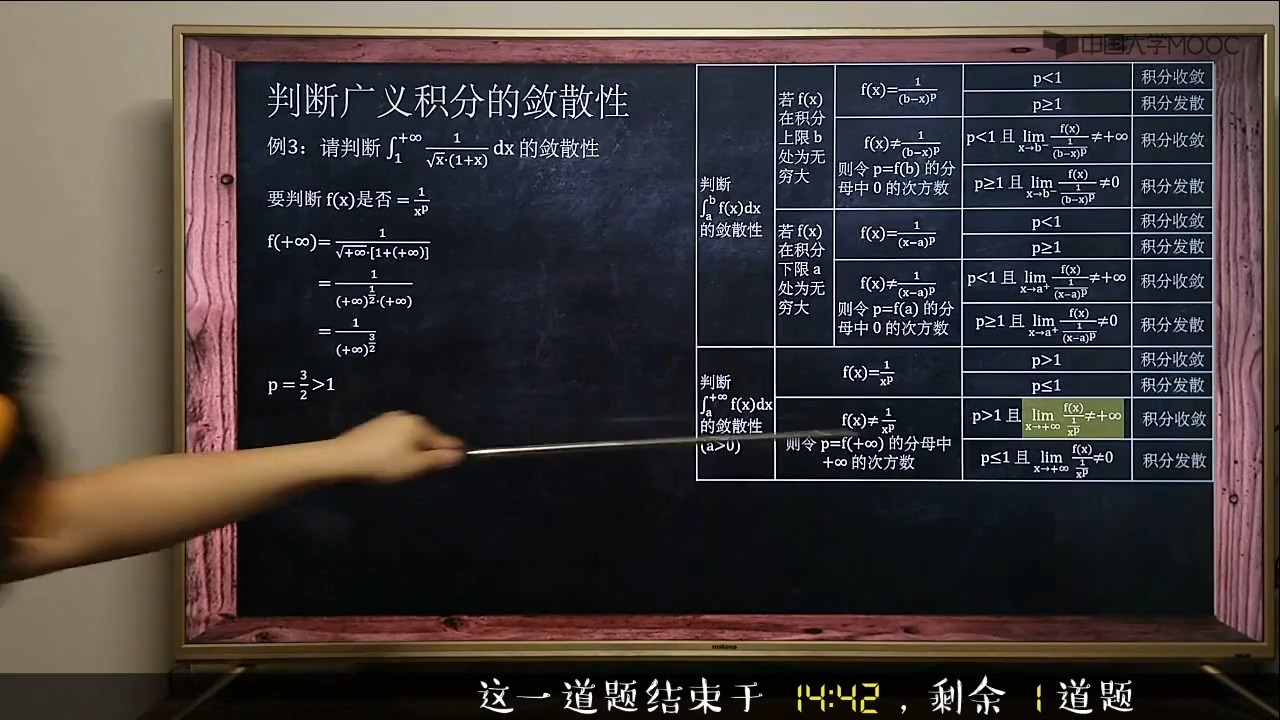 中国大学MOOC
判断广义积分的敛散性
例3：请判断 ∫₁^{+∞} 1/(√x·(1+x)) dx 的敛散性
要判断 f(x)是否 = 1/x^p
f(+∞)= 1/(√+∞·[1+(+∞)])
= 1/((+∞)^{1/2}·(+∞))
= 1/(+∞)^{3/2}
p = 3/2 >1
判断
∫ₐ^b f(x)dx
的敛散性
若 f(x)
在积分
上限 b
处为无
穷大
f(x)= 1/(b−x)^p
p<1
积分收敛
p≥1
积分发散
f(x)≠ 1/(b−x)^p
则令 p=f(b) 的分
母中 0 的次方数
p<1 且 lim_{x→b⁻} f(x)/(1/(b−x)^p) ≠+∞
积分收敛
p≥1 且 lim_{x→b⁻} f(x)/(1/(b−x)^p) ≠0
积分发散
若 f(x)
在积分
下限 a
处为无
穷大
f(x)= 1/(x−a)^p
p<1
积分收敛
p≥1
积分发散
f(x)≠ 1/(x−a)^p
则令 p=f(a) 的分
母中 0 的次方数
p<1 且 lim_{x→a⁺} f(x)/(1/(x−a)^p) ≠+∞
积分收敛
p≥1 且 lim_{x→a⁺} f(x)/(1/(x−a)^p) ≠0
积分发散
判断
∫ₐ^{+∞} f(x)dx
的敛散性
(a>0)
f(x)= 1/x^p
p>1
积分收敛
p≤1
积分发散
f(x)≠ 1/x^p
则令 p=f(+∞) 的分母中
+∞ 的次方数
p>1 且 lim_{x→+∞} f(x)/(1/x^p) ≠+∞
积分收敛
p≤1 且 lim_{x→+∞} f(x)/(1/x^p) ≠0
积分发散
makena
这一道题结束于 14:42 ，剩余 1 道题